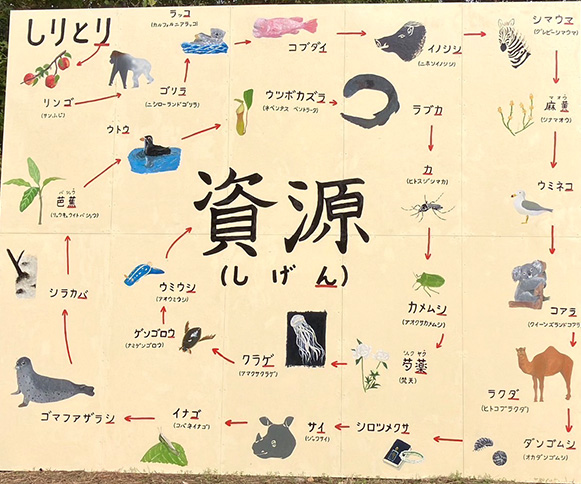 しりとり
リンゴ
(サンふじ)
ゴリラ
(ニシローランドゴリラ)
ラッコ
(カルフォルニアラッコ)
コブダイ
イノシシ
(ニホンイノシシ)
シマウマ
(グレビーシマウマ)
マオウ
麻黄
(シナマオウ)
ウミネコ
コアラ
(クイーンズランドコアラ)
ラクダ
(ヒトコブラクダ)
ダンゴムシ
(オカダンゴムシ)
シロツメクサ
サイ
イナゴ
(コバネイナゴ)
ゴマフアザラシ
シラカバ
バショウ
芭蕉
(リュウキュウイトバショウ)
ウトウ
ウツボカズラ
ラブカ
カ
(ヒトスジシマカ)
カメムシ
(アオクサカメムシ)
シャクヤク
芍薬
(梵天)
クラゲ
(アマクサクラゲ)
ゲンゴロウ
(ナミゲンゴロウ)
ウミウシ
(アオウミウシ)
資源
(しげん)